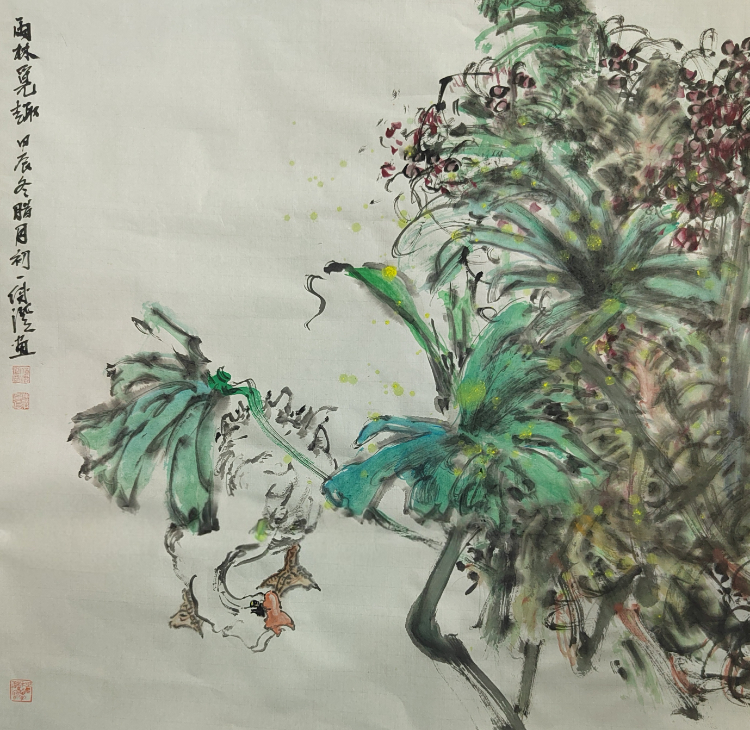 雨林觅趣 甲辰冬腊月初一 继滢画